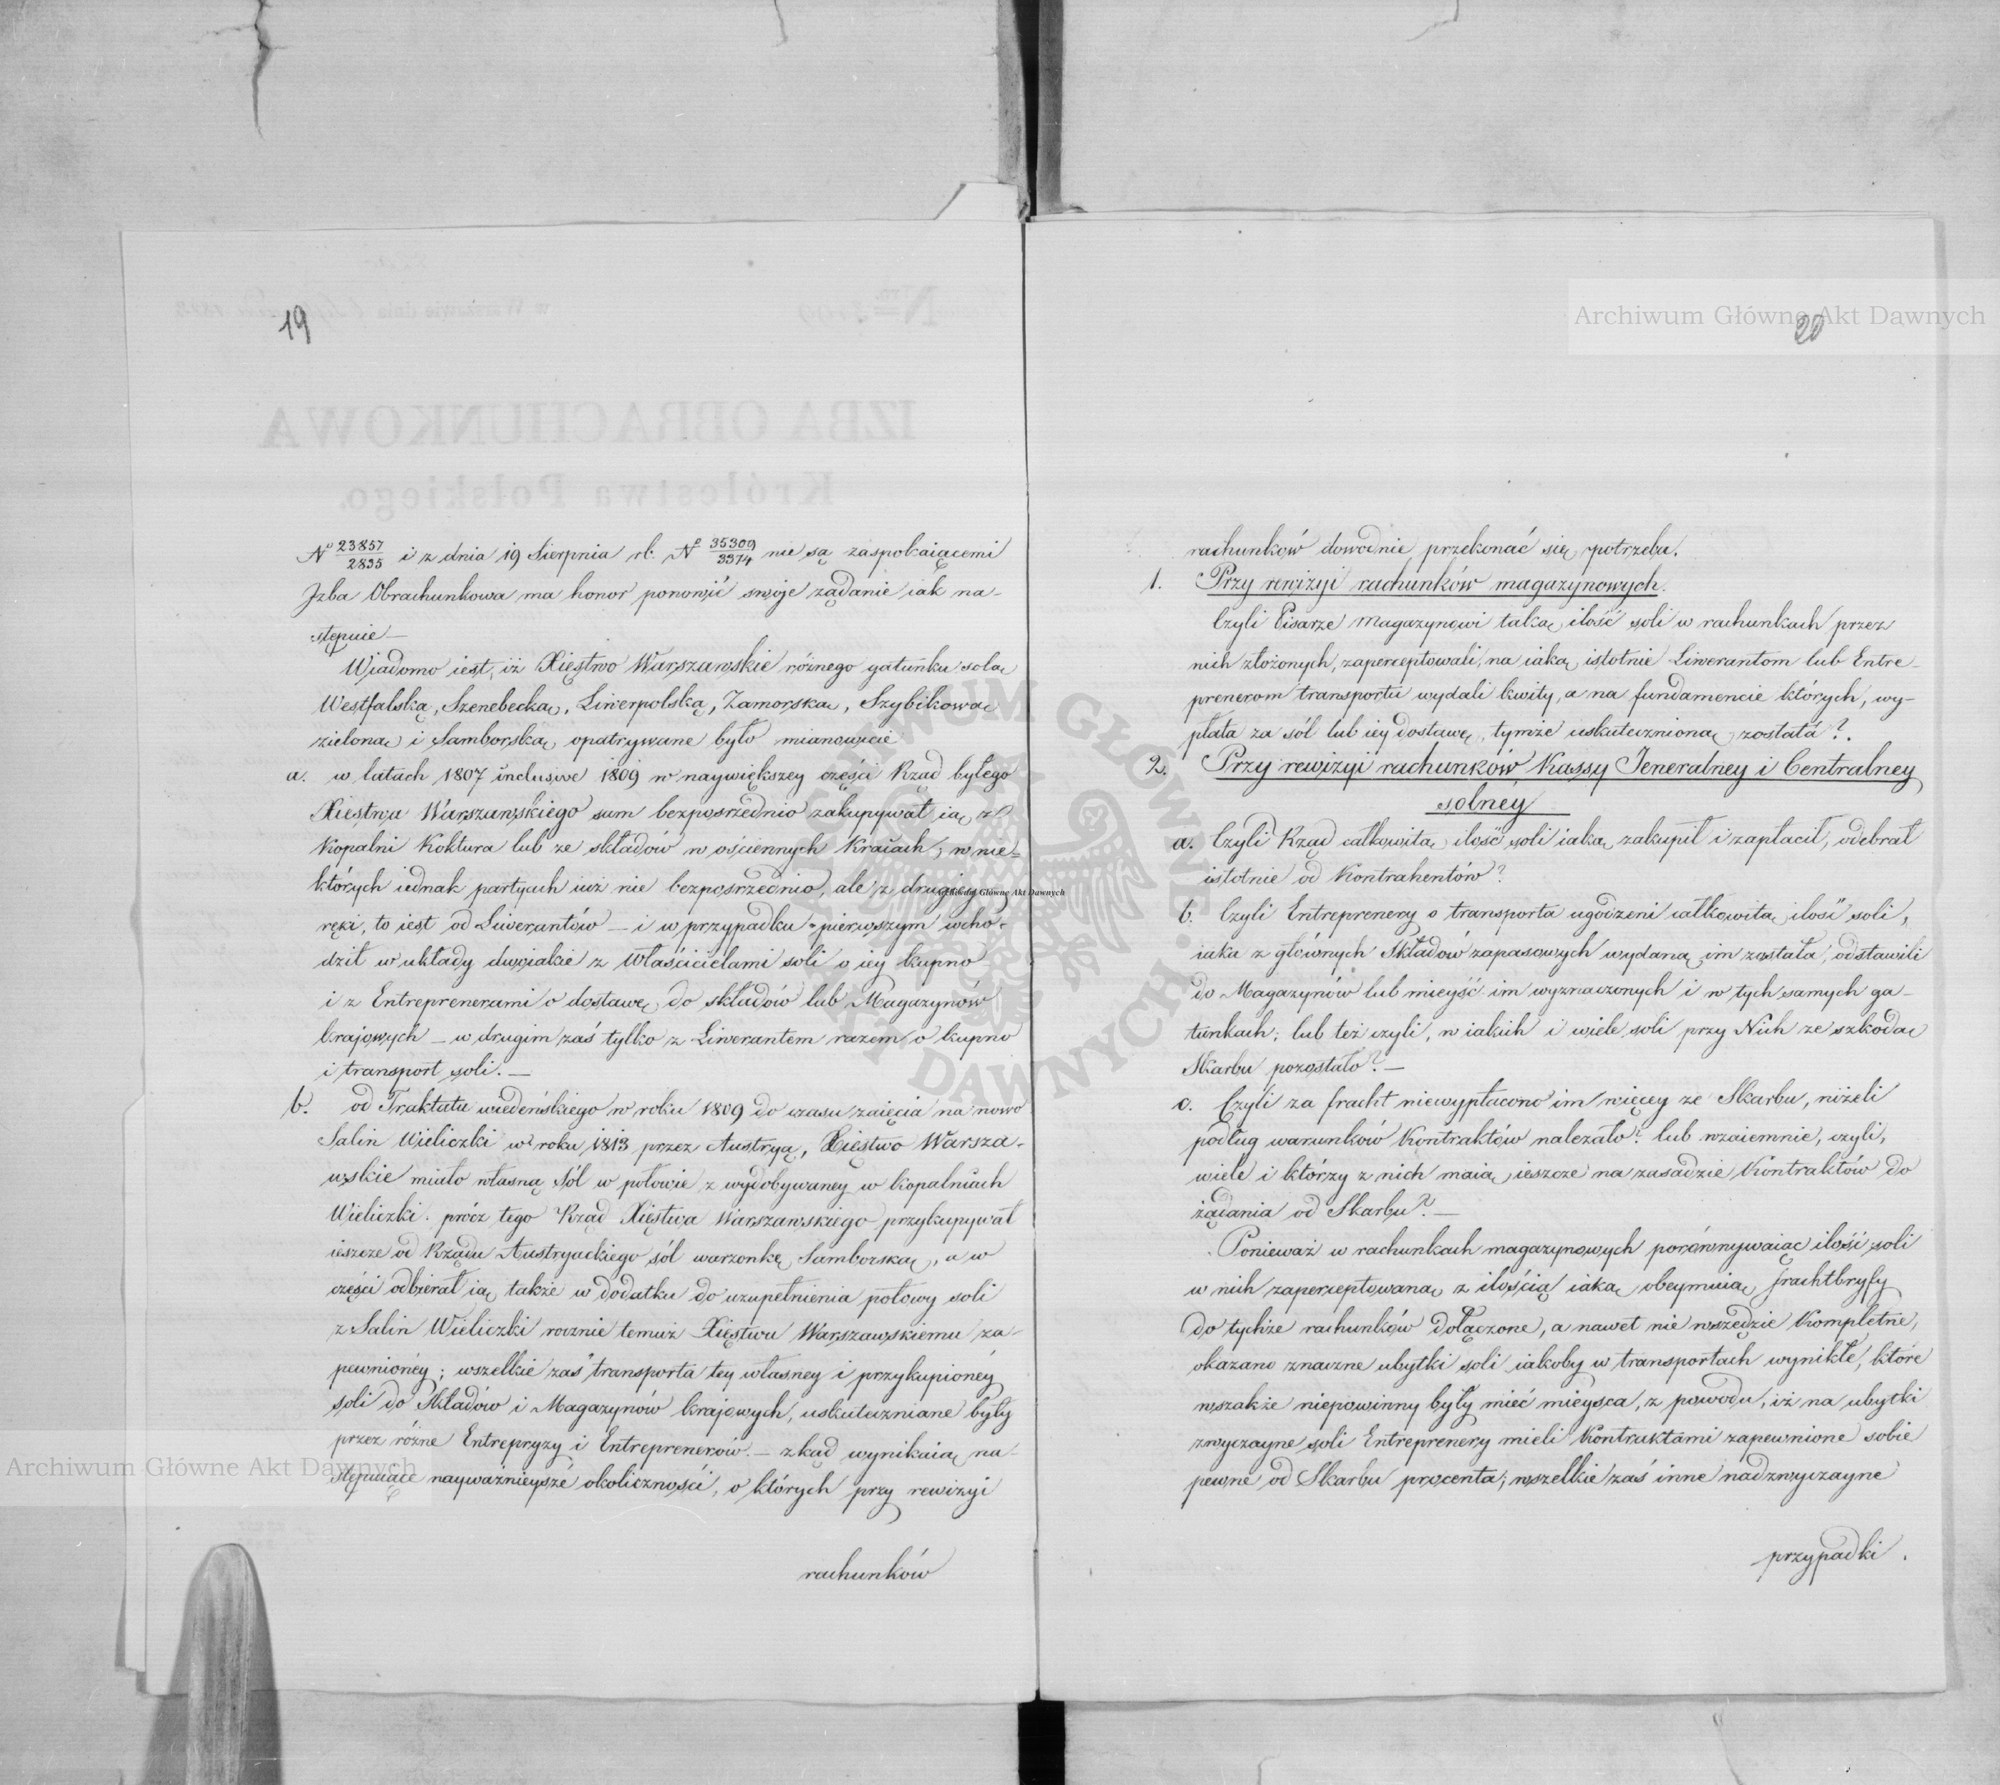 19
N° 23857/2835 i z dnia 19 Sierpnia rb. N° 35309/3374 nie są zaspokaiącemi
Jzba Obrachunkowa ma honor ponowić swoje żądanie iak na-
stępuie —
Wiadomo iest, iż Xięstwo Warszawskie różnego gatunku solą
Westfalską, Szenebecką, Liwerpolską, Zamorską, Szybikową
zieloną i Samborską opatrywane było mianowicie
a. w latach 1807 inclusive 1809 w naywiększey części Rząd byłego
Xięstwa Warszawskiego sum bezpośrednio zakupywał ią z
Kopalni Koktura lub ze składów w ościennych Kraiach; w nie=
których iednak partyach iuż nie bezpośrednio, ale z drugiey
ręki, to iest od Liwerantów — i w przypadku pierwszym wcho-
dził w układy dwoiakie z Właścicielami soli o iey kupno
i z Entreprenerami o dostawę do składów lub Magazynów
krajowych — w drugim zaś tylko z Liwerantem razem o kupno
i transport soli. —
b. od Traktatu wiedeńskiego w roku 1809 do czasu zaięcia na nowo
Salin Wieliczki w roku 1813 przez Austryą, Xięstwo Warsza-
wskie miało własną sól w połowie z wydobywaney w kopalniach
Wieliczki. prócz tego Rząd Xięstwa Warszawskiego przykupywał
ieszcze od Rządu Austryackiego sól warzonkę Samborską, a w
części odbierał ią także w dodatku do uzupełnienia połowy soli
z Salin Wieliczki rocznie temuż Xięstwu Warszawskiemu za-
pewnioney; wszelkie zaś transporta tey własney i przykupioney
soli do Składów i Magazynów krajowych, uskuteczniane były
przez różne Entrepryzy i Entreprenerów. — zkąd wynikaią na-
stępuiące nayważnieysze okoliczności, o których przy rewizyi
rachunków
20
rachunków dowodnie przekonać się potrzeba.
1. Przy rewizyi rachunków magazynowych.
Czyli Pisarze Magazynowi taką ilość soli w rachunkach przez
nich złożonych, zaperceptowali, na iaką istotnie Liwerantom lub Entre-
prenerom transportu wydali kwity, a na fundamencie których, wy-
płata za sól lub iey dostawę, tymże uskutecznioną została?.
2. Przy rewizyi rachunków Kassy Jeneralney i Centralney
solney
a. Czyli Rząd całkowitą ilość soli iaką zakupił i zapłacił, odebrał
istotnie od Kontrahentów?
b. Czyli Entreprenery o transporta ugodzeni całkowitą ilość soli,
iaka z głównych Składów zapasowych wydaną im została, odstawili
do Magazynów lub mieyść im wyznaczonych i w tych samych ga-
tunkach; lub też czyli, w iakich i wiele soli przy Nich ze szkodą
Skarbu pozostało? —
c. Czyli za fracht niewypłacono im więcey ze Skarbu, niżeli
podług warunków Kontraktów należało? lub wzaiemnie, czyli,
wiele i którzy z nich maią ieszcze na zasadzie Kontraktów do
żądania od Skarbu? —
Ponieważ w rachunkach magazynowych porównywaiąc ilość soli
w nich zaperceptowaną z ilością iaką obeymuią frachtbryfy
do tychże rachunków dołączone, a nawet nie wszędzie Kompletne,
okazano znaczne ubytki soli iakoby w transportach wynikłe, które
wszakże niepowinny były mieć mieysca, z powodu, iż na ubytki
zwyczayne soli Entreprenery mieli Kontraktami zapewnione sobie
pewne od Skarbu procenta; wszelkie zaś inne nadzwyczayne
przypadki.
Archiwum Główne Akt Dawnych
Archiwum Główne Akt Dawnych
Archiwum Główne Akt Dawnych
ARCHIWUM GŁÓWNE AKT DAWNYCH